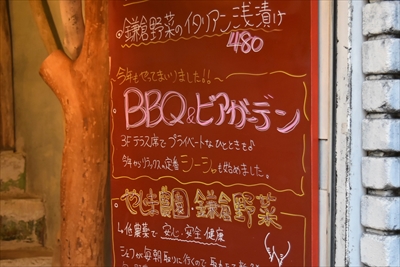 鎌倉野菜のイタリアン浅漬け
480
今年もやってまいりました!!~
BBQ&ビアガーデン
3Fテラス席でプライベートなひとときを♪
今年からリラックス定番シーシャも始めました。
やしま農園・鎌倉野菜
低農薬で安心、安全、健康
シェフが毎朝取りに行くので